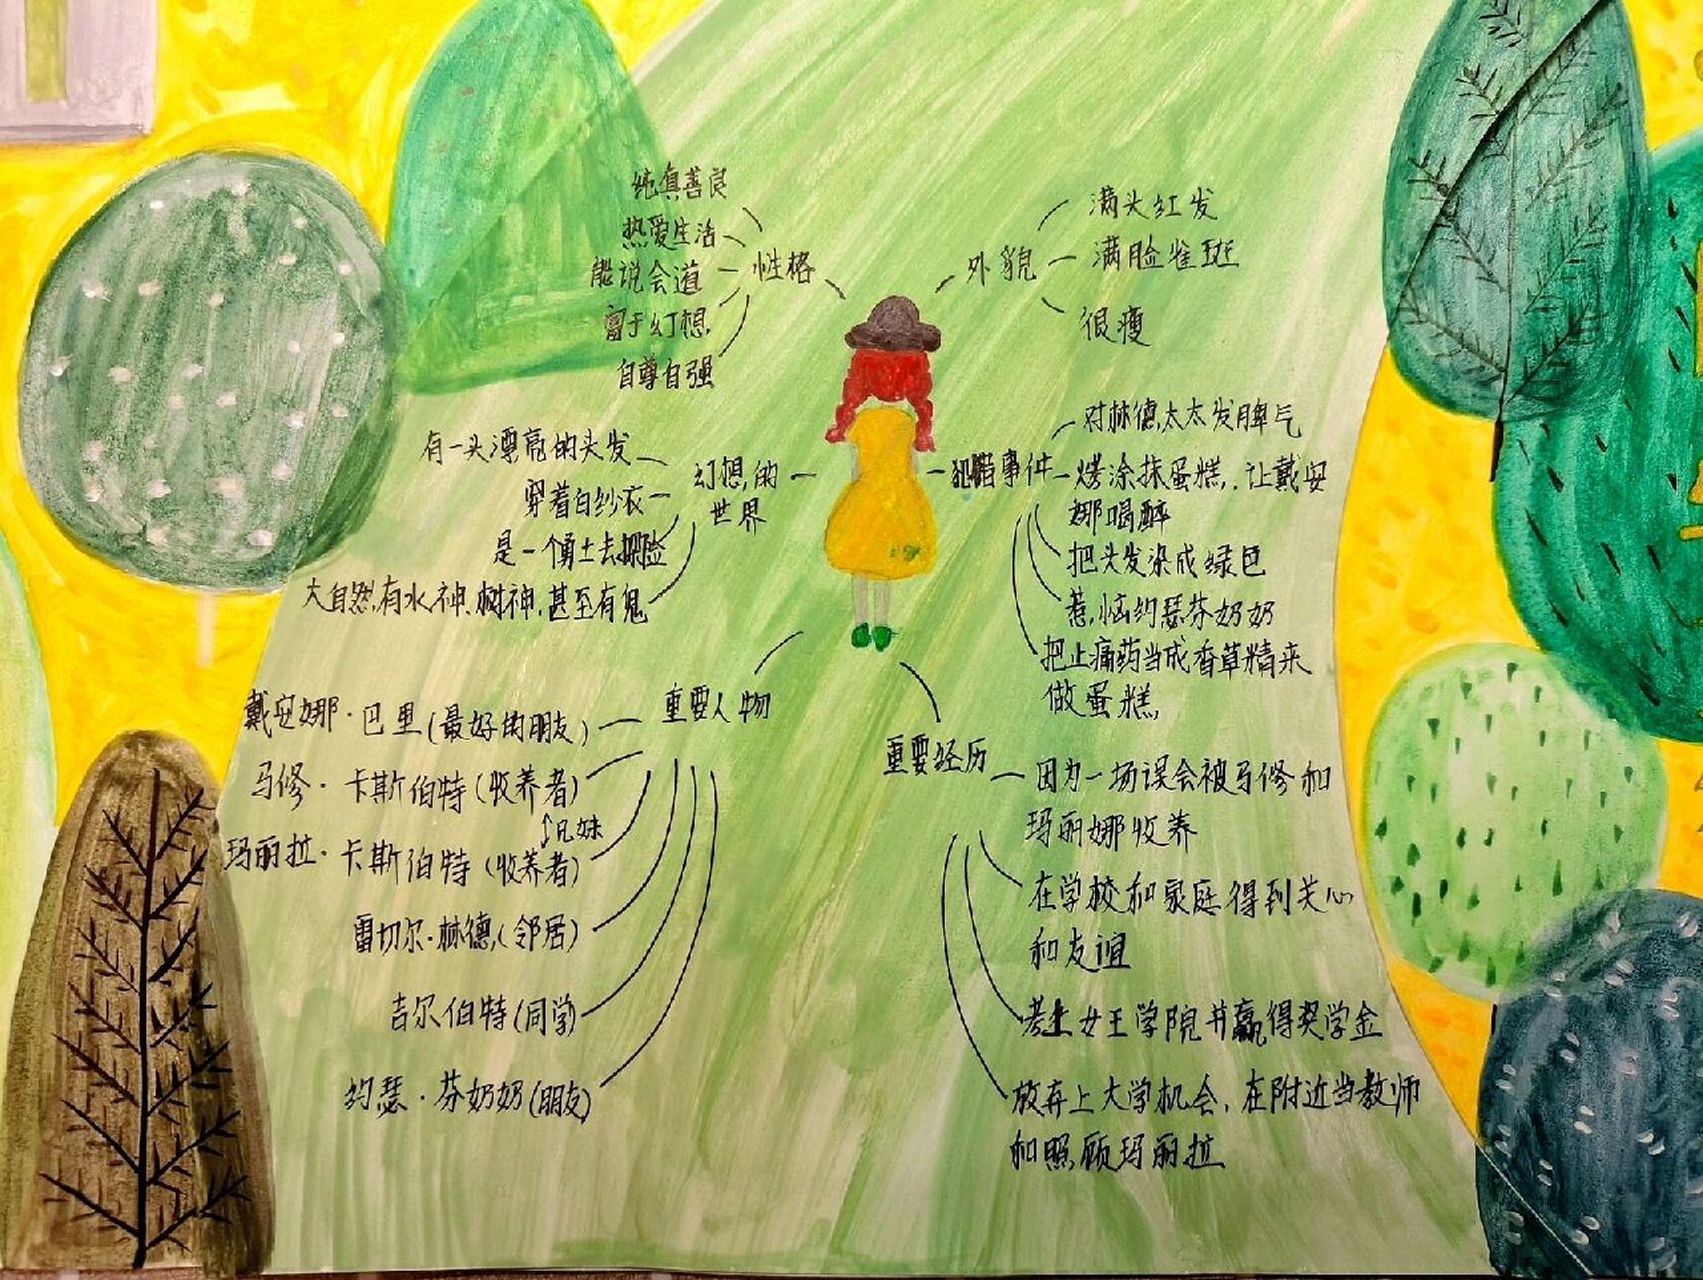 性格
纯真善良
热爱生活
能说会道
富于幻想
自尊自强
外貌
满头红发
满脸雀斑
很瘦
幻想的
世界
有一头漂亮的头发
穿着白纱衣
是一个勇士去探险
大自然有水神、树神,甚至有鬼
犯错事件
对林德太太发脾气
烤涂抹蛋糕,让戴安
娜喝醉
把头发染成绿色
惹恼约瑟芬奶奶
把止痛药当成香草精来
做蛋糕
重要人物
戴安娜·巴里(最好的朋友)
马修·卡斯伯特(收养者)
兄妹
玛丽拉·卡斯伯特(收养者)
雷切尔·林德(邻居)
吉尔伯特(同学)
约瑟·芬奶奶(朋友)
重要经历
因为一场误会被马修和
玛丽娜收养
在学校和家庭得到关心
和友谊
考上女王学院并赢得奖学金
放弃上大学机会,在附近当教师
和照顾玛丽拉